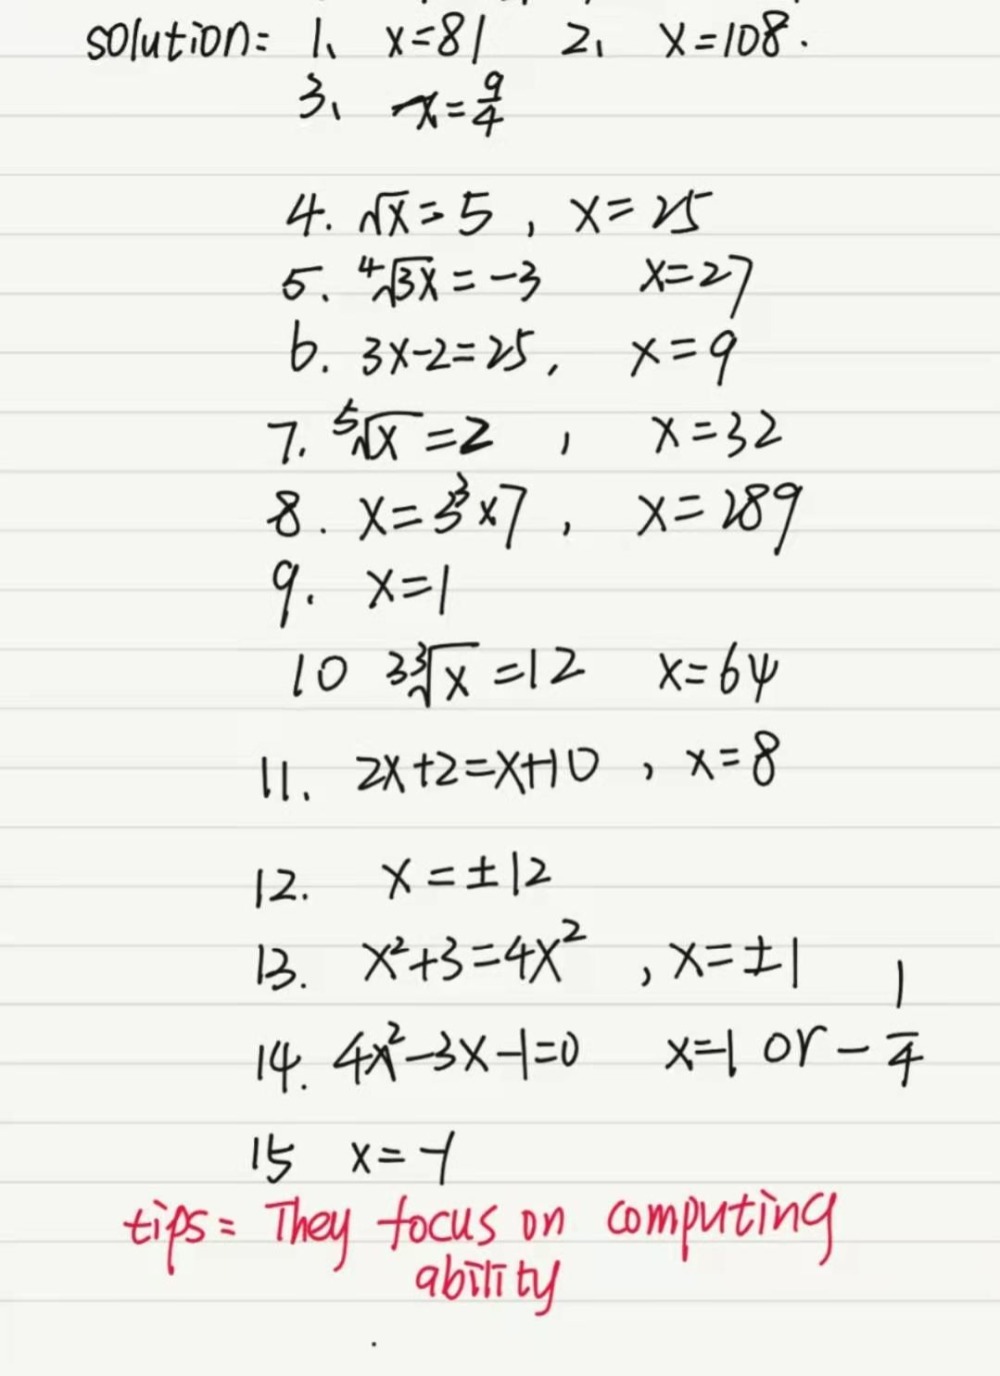 solution: 1、 x=81 2、 x=108.
3、 x=9/4
4. √x=5, x=25
5. ⁴√3x=-3 x=27
6. 3x-2=25, x=9
7. ⁵√x=2, x=32
8. x=3³×7, x=289
9. x=1
10 3³√x=12 x=64
11. 2x+2=x+10, x=8
12. x=±12
13. x²+3=4x², x=±1
14. 4x²-3x-1=0 x=1 or -1/4
15 x=-1
tips= They focus on computing
ability